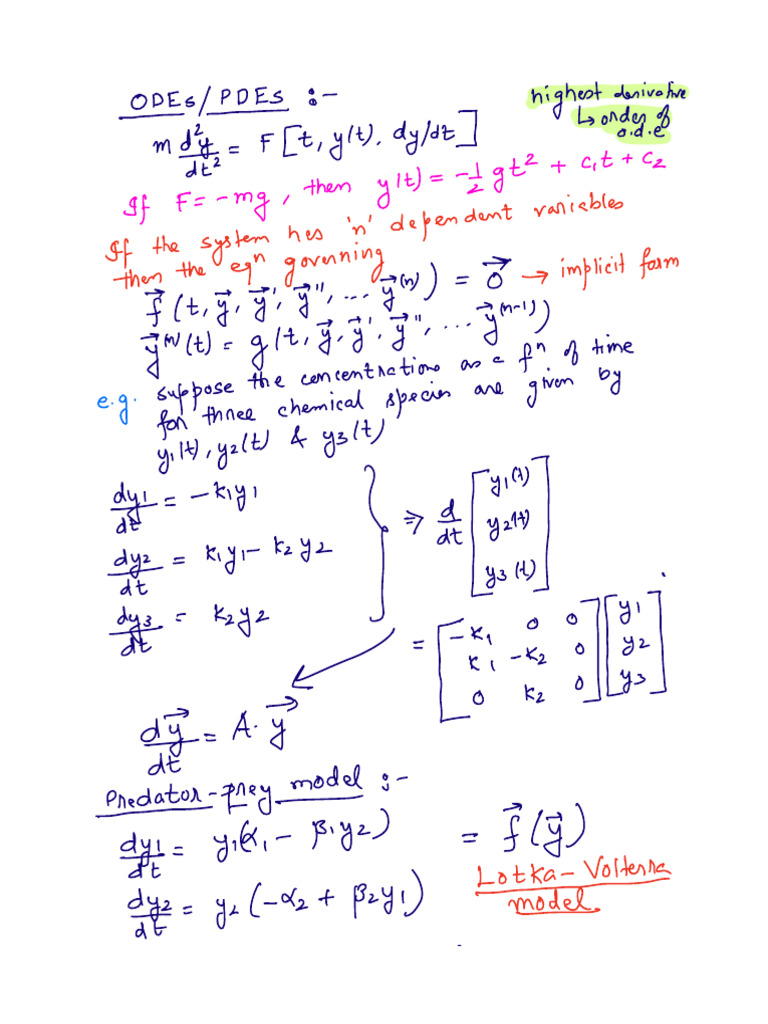 ODEs/PDEs :-
highest derivative
↳ order of
o.d.e
m d²y/dt² = F[t, y(t), dy/dt]
If F = -mg, then y(t) = -1/2 gt² + c₁t + c₂
If the system has 'n' dependent variables
then the eqⁿ governing
f⃗(t, y⃗, y⃗', y⃗'', ... y⃗⁽ⁿ⁾) = 0⃗ → implicit form
y⃗⁽ⁿ⁾(t) = g(t, y⃗, y⃗', y⃗'', ... y⃗⁽ⁿ⁻¹⁾)
e.g. suppose the concentrations as a fⁿ of time
for three chemical species are given by
y1(t), y2(t) & y3(t)
dy1/dt = -k1y1
dy2/dt = k1y1 - k2y2
dy3/dt = k2y2
⇒ d/dt [y1(t)
y2(t)
y3(t)]
= [-k1 0 0
k1 -k2 0
0 k2 0] [y1
y2
y3]
dy⃗/dt = A·y⃗
Predator-prey model :-
dy1/dt = y1(α1 - β1y2)
dy2/dt = y2(-α2 + β2y1)
= f⃗(y⃗)
Lotka-Volterra
model.